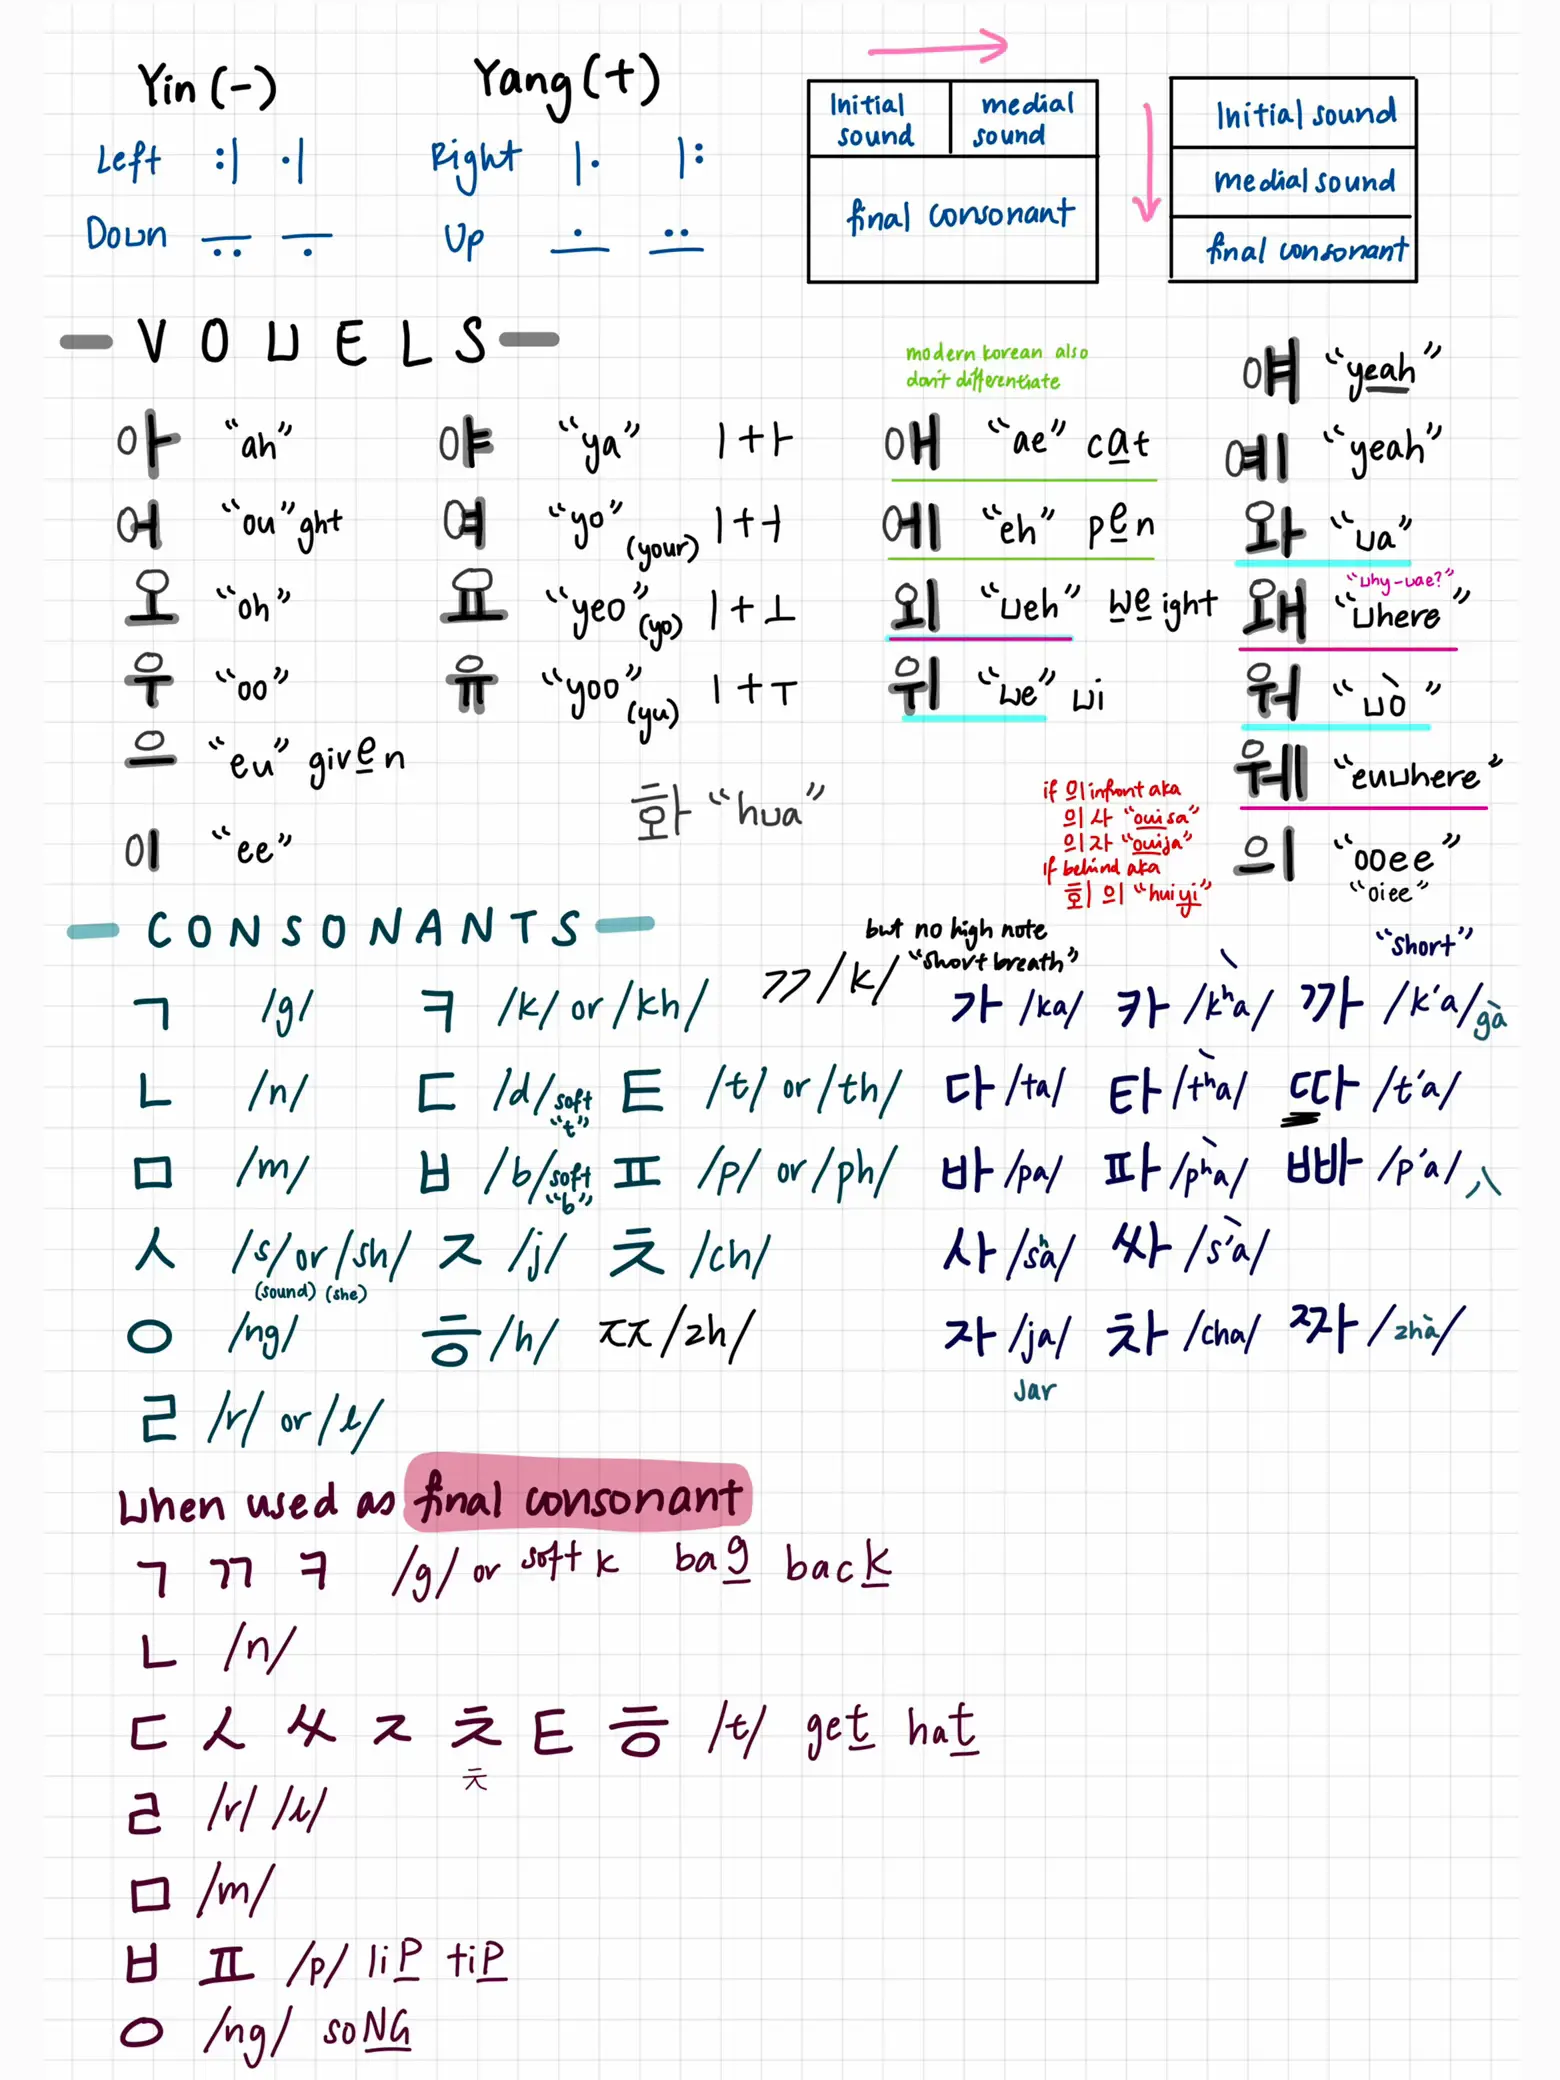 Yin (-)
Yang (+)
Left
Right
Down
Up
Initial sound
medial sound
final consonant
Initial sound
medial sound
final consonant
VOWELS
modern korean also
don't differentiate
아 "ah"
야 "ya" ㅣ+ㅏ
애 "ae" cat
얘 "yeah"
어 "ou"ght
여 "yo" (your) ㅣ+ㅓ
에 "eh" pen
예 "yeah"
오 "oh"
요 "yeo" (yo) ㅣ+ㅗ
외 "weh" weight
와 "wa"
우 "oo"
유 "yoo" (yu) ㅣ+ㅜ
위 "we" wi
"why-wae?"
왜 "where"
으 "eu" given
워 "wò"
이 "ee"
화 "hua"
웨 "euwhere"
if 의 infront aka
의사 "ouisa"
의자 "ouija"
if behind aka
회의 "huiyi"
의 "ooee"
"oiee"
CONSONANTS
but no high note
ㄲ /k/ "short breath"
"short"
ㄱ /g/ ㅋ /k/ or /kh/
가 /ka/ 카 /kʰa/ 까 /k'a/ gà
ㄴ /n/ ㄷ /d/ soft "t" ㅌ /t/ or /th/
다 /ta/ 타 /tʰa/ 따 /t'a/
ㅁ /m/ ㅂ /b/ soft "b" ㅍ /p/ or /ph/
바 /pa/ 파 /pʰa/ 빠 /p'a/ 八
ㅅ /s/ or /sh/ ㅈ /j/ ㅊ /ch/
(sound) (she)
사 /sʰa/ 싸 /s'a/
ㅇ /ng/ ㅎ /h/ ㅉ /zh/
자 /ja/ 차 /cha/ 짜 /zhà/
Jar
ㄹ /r/ or /l/
When used as final consonant
ㄱ ㄲ ㅋ /g/ or soft k bag back
ㄴ /n/
ㄷ ㅅ ㅆ ㅈ ㅊ ㅌ ㅎ /t/ get hat
ㅊ
ㄹ /r/ /l/
ㅁ /m/
ㅂ ㅍ /p/ liP tiP
ㅇ /ng/ soNG